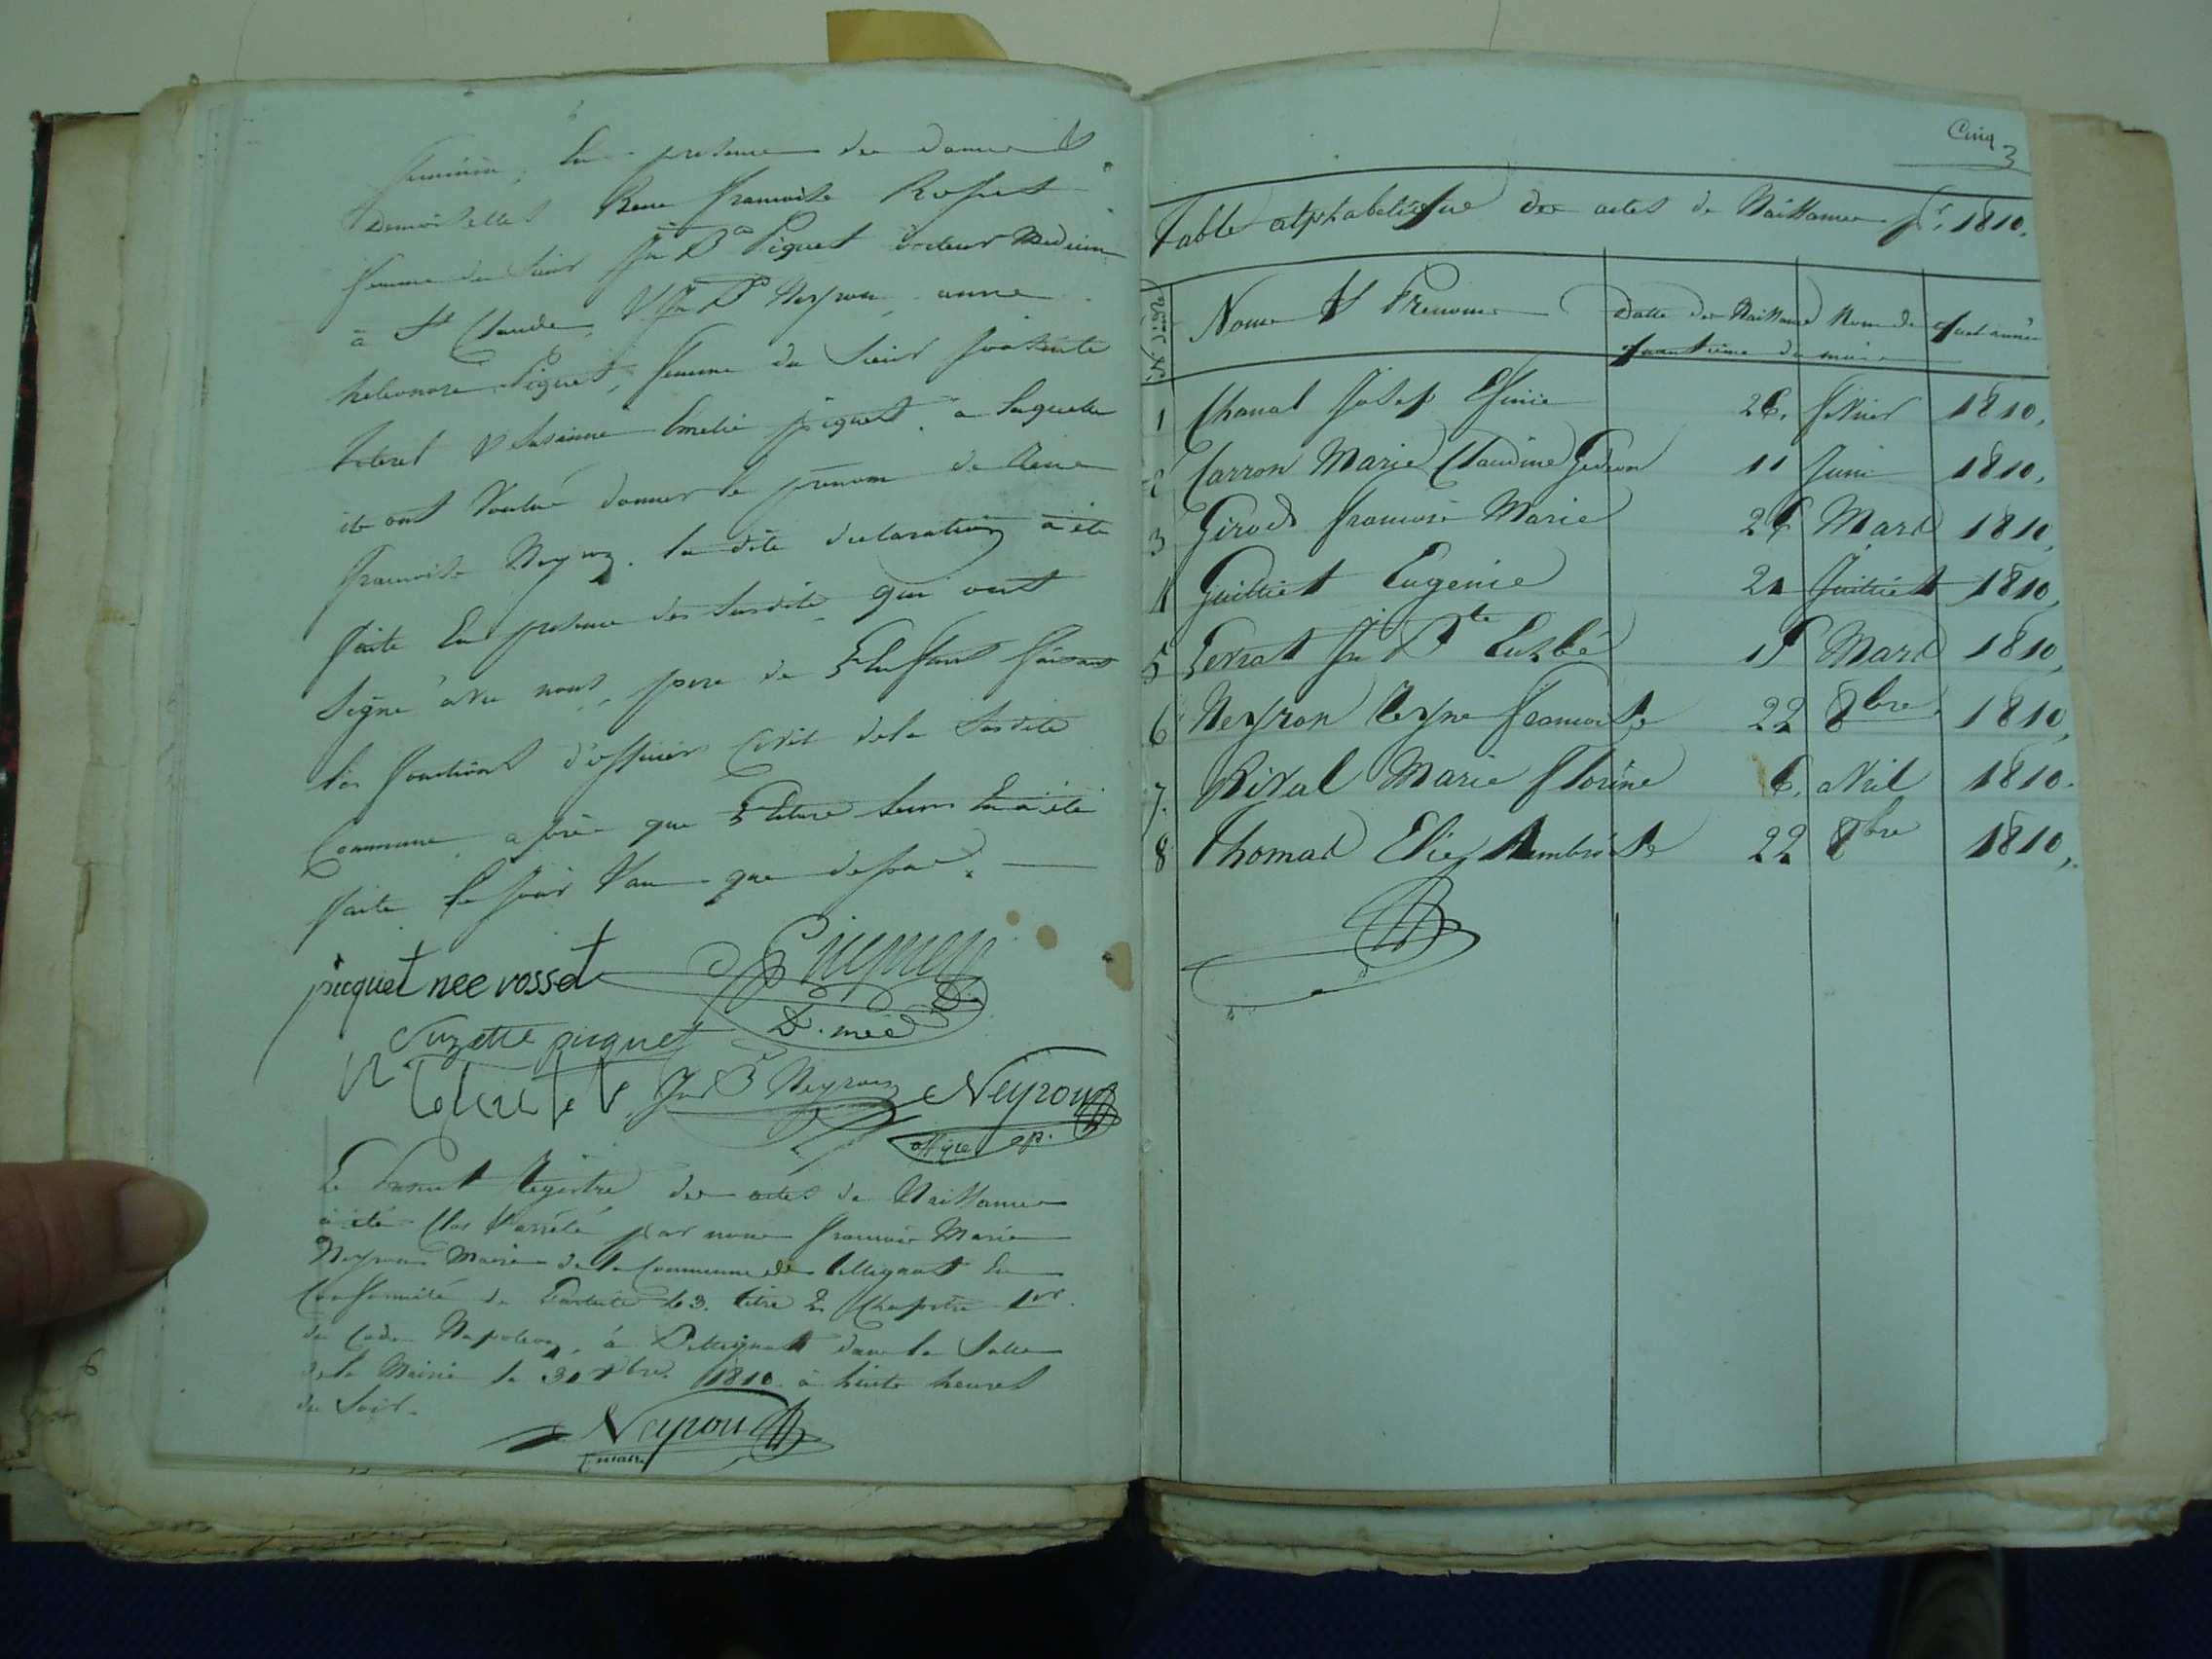 feminin, En presence des dames et
Demoiselles Rene francoise Rosset
femme du Sieur Jn Bte Piquet docteur Medecin
à St Claude, & Jn Bte Neyron, anne
heleonore Piquet, femme du Sieur
& Susanne Emelie piquet. a laquelle
ils ont Voulu donner le prenom de Rene
francoise Neyron. la dite declaration a été
faite En presence des susdits, qui ont
Signé avec nous, pere de L'Enfant faisant
les fonctions d'officier Civil de la susdite
Commune après que Lecture leurs En a été
faite le jour & an que dessus.
picquet nee rosset
D. med
Suzette picquet
Jn Bte Neyron Neyron
Le Present Registre des actes de Naissances
a été Clos & arrêté par nous francois Marie
Neyron Maire de la Commune de Bellignat En
Conformité de l'article 43. titre 2. Chapitre 1er.
du Code Napoleon, à Bellignat dans la Salle
de la Mairie le 31 Xbre 1810 à huits heures
du Soir.
Neyron
maire
Cinq
3
Table alphabetique des actes de Naissances pr. 1810.
Noms & Prenoms Datte des Naissance Nom de quel année
quantième du mois
1 Chanal Josep 26. fevrier 1810,
2 Carron Marie Claudine Gedeon 11 Juin 1810,
3 Girod francoise Marie 26 Mars 1810,
4 Guilliet Eugenie 21 Juilliet 1810,
5 Jn Bte Euzbé 15 Mars 1810,
6 Neyron Reyne francoise 22 8bre, 1810,
7. Rival Marie florine 6. avril 1810.
8 Thomas Elie Ambroise 22 8bre 1810,